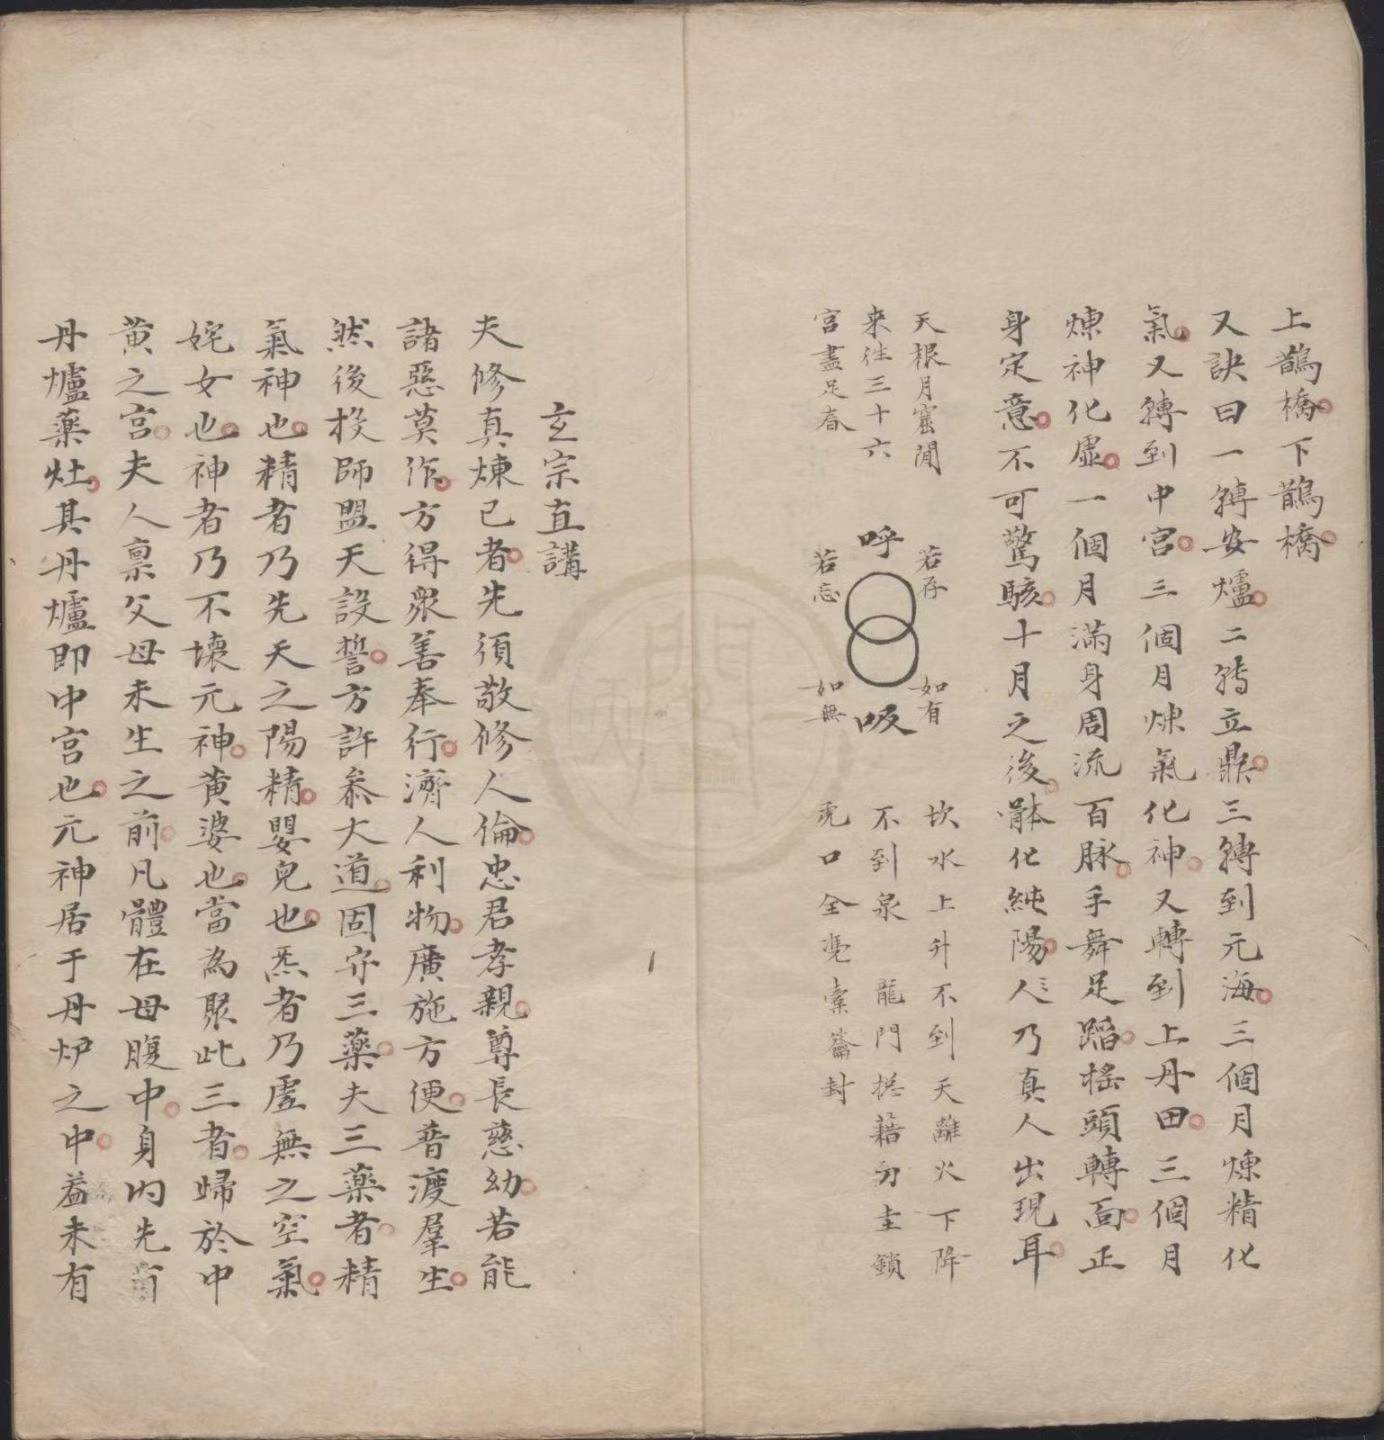 上鵲橋下鵲橋
又訣曰一轉安爐二轉立鼎三轉到元海三個月煉精化
氣又轉到中宮三個月煉氣化神又轉到上丹田三個月
煉神化虛一個月滿身周流百脉手舞足蹈搖頭轉面正
身定意不可驚駭十月之後骵化純陽人乃真人出現耳
天根月窟閒
来往三十六
宮盡足春
呼
吸
若存
若忘
如有
如無
坎水上升不到天離火下降
不到泉 龍門 藉刀圭鎖
虎口全憑 籥封
玄宗直講
夫修真煉己者先須敬修人倫忠君孝親尊長慈幼若能
諸惡莫作方得衆善奉行濟人利物廣施方便普渡羣生
然後投師盟天設誓方許叅大道固守三藥夫三藥者精
氣神也精者乃先天之陽精嬰兒也炁者乃虛無之空氣
姹女也神者乃不壞元神黄婆也當為聚此三者歸於中
黄之宮夫人禀父母未生之前凡體在母腹中身内先有
丹爐藥灶其丹爐即中宮也元神居于丹炉之中葢未有